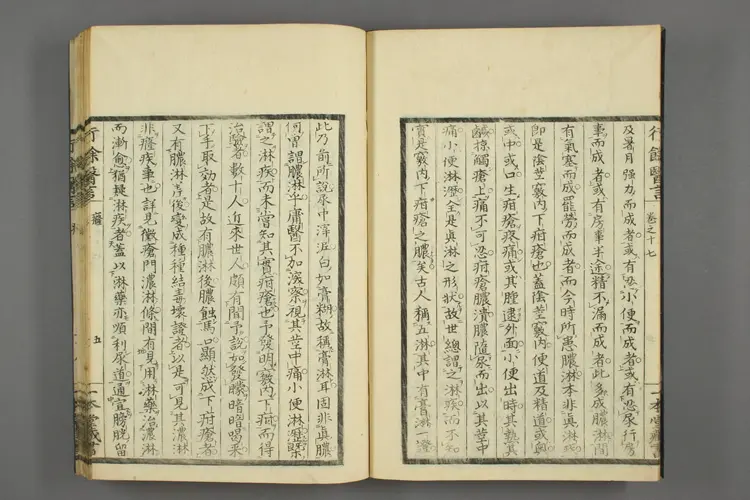 行餘醫言 卷之十七
及暑月強力而成者或有忍小便而成者或有忍尿行房
事而成者或有房事半途精不漏而成者此多成膿淋間
有氣塞而成罷勞而成者而今時所患膿淋本非真淋
即是陰莖竅內下疳瘡也蓋陰莖竅內便道及精道或
或中或口生疳瘡疼痛或其膣邊外面小便出時其熱其
鹹掠觸瘡上痛不可忍疳瘡膿潰膿隨尿而出以其莖中
痛小便淋瀝全是真淋之形狀故世總謂之淋疾而不知
實是竅內下疳瘡之膿矣古人稱五淋其中有膏淋
一本堂藏書
此乃前所說尿中滓浜白如膏糊故稱膏淋耳固非真膿
何曾謂膿淋乎庸醫不加深察視其莖中痛小便淋瀝槩
謂之淋疾而未嘗知其實疳瘡也予發明竅內下疳而得
治驗者數十人近來世人頗有聞予說如發矇暗暗喝采
下手取効者是故有膿淋後膿蝕馬口顯然成下疳瘡者
又有膿淋濟後變成種種結毒壞證者以是可見其膿淋
非癃疾事也詳見黴瘡門濃淋條間有用淋藥治濃淋
而漸愈猶疑淋疾者蓋以淋藥亦順利尿道通宣膀胱留
行餘醫言
五
一本堂藏書